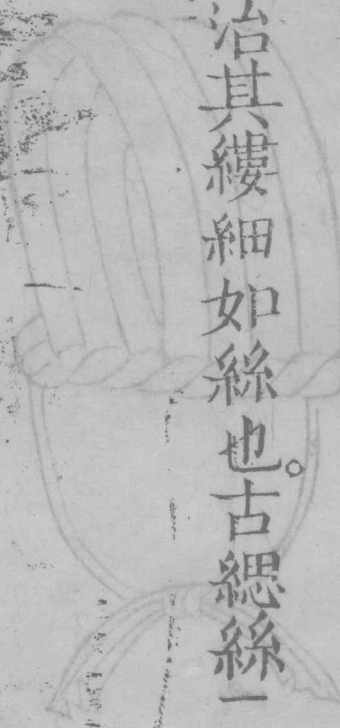 治其縷細如絲也。古緦絲一